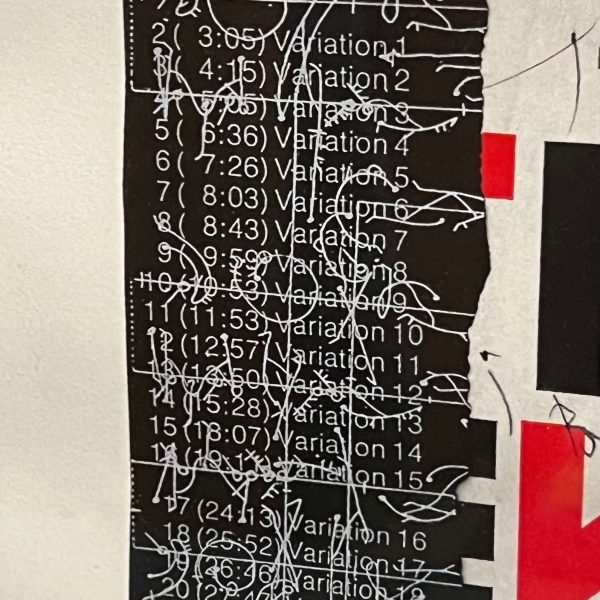 2( 3:05) Variation 1
3( 4:15) Variation 2
4( Variation 3
5( 6:36) Variation 4
6( 7:26) Variation 5
7( 8:03) Variation 6
8( 8:43) Variation 7
9( 9:59) Variation 8
10(10:53) Variation 9
11(11:53) Variation 10
12(12:57) Variation 11
13(13:50) Variation 12
14(15:28) Variation 13
15(18:07) Variation 14
16 Variation 15
17(24:13) Variation 16
18(25:52) Variation 17
19(26:46) Variation 18
20